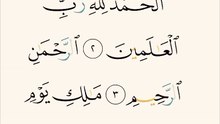 ٱلْحَمْدُ لِلَّهِ رَبِّ
ٱلْعَٰلَمِينَ ٢ ٱلرَّحْمَٰنِ
ٱلرَّحِيمِ ٣ مَٰلِكِ يَوْمِ